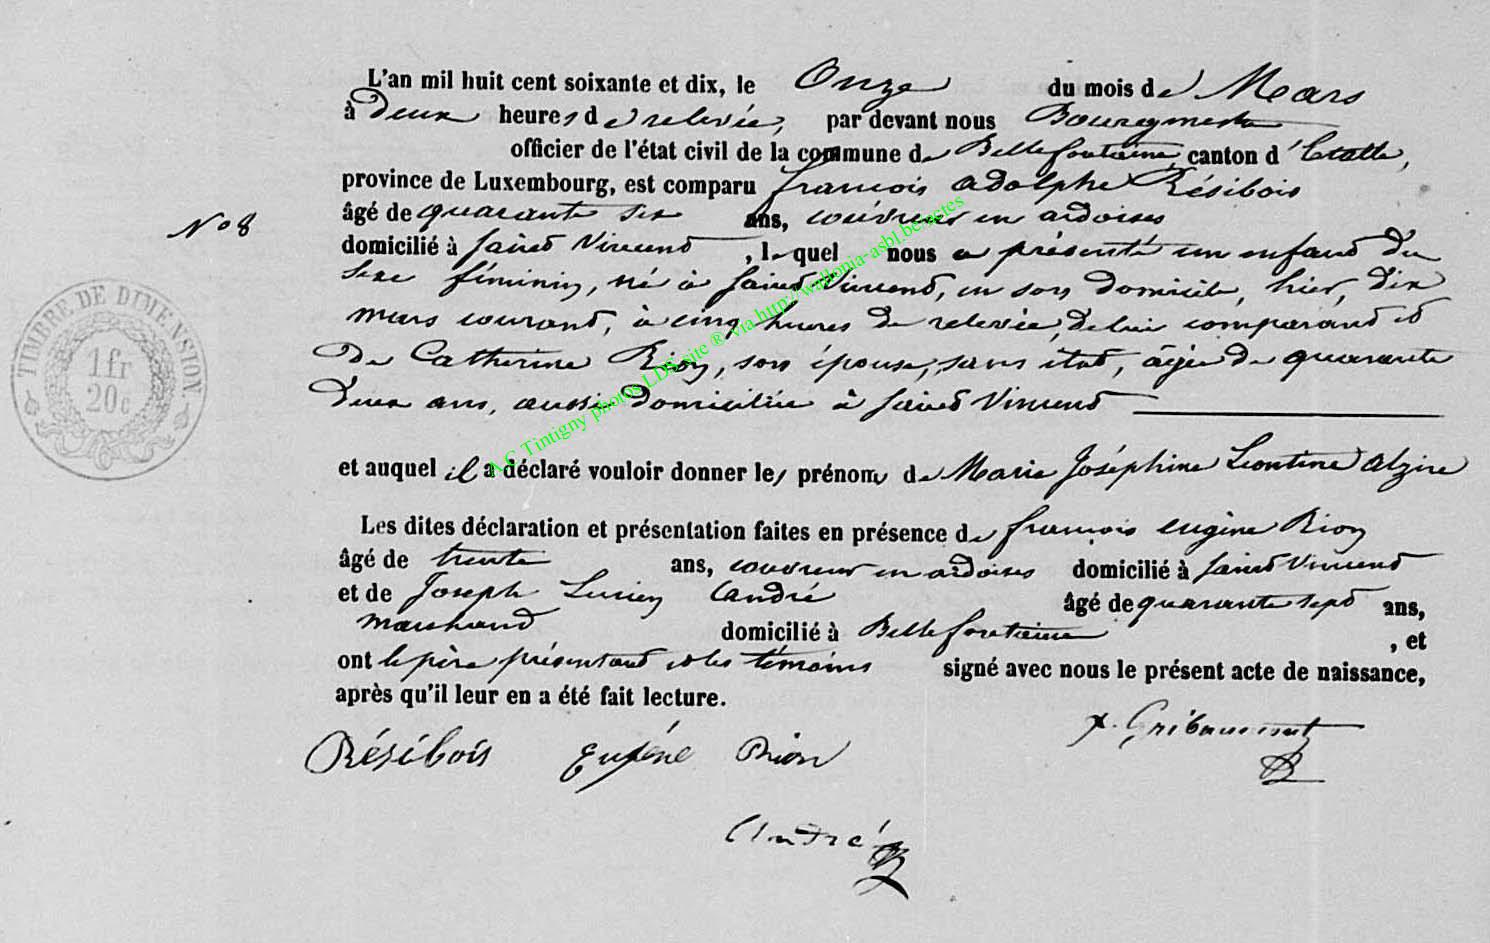 L'an mil huit cent soixante et dix, le Onze du mois de Mars
à Deux heures de relevée, par devant nous Bourgmestre
officier de l'état civil de la commune de Bellefontaine, canton d'Etalle,
province de Luxembourg, est comparu françois adolphe Résibois
âgé de quarante six ans, couvreur en ardoises
N° 8
domicilié à Saint Vincent, lequel nous a présenté un enfant du
sexe féminin, né à Saint Vincent, en son domicile, hier, dix
mars courant, à cinq heures de relevée, de lui comparant et
De Catherine Rion, son épouse, sans état, âgée de quarante
Deux ans, aussi domiciliée à Saint Vincent
et auquel il a déclaré vouloir donner les prénoms de Marie Joséphine Léontine alzire
Les dites déclaration et présentation faites en présence de françois eugène Rion
âgé de trente ans, couvreur en ardoises domicilié à Saint Vincent
et de Joseph Lucien André âgé de quarante sept ans,
marchand domicilié à Bellefontaine, et
ont le père présentant et les témoins signé avec nous le présent acte de naissance,
après qu'il leur en a été fait lecture.
Résibois Eugène Rion
André
TIMBRE DE DIMENSION.
1 fr
20 c
A.C Tintigny photos LDS site ® via http://wallonia-asbl.be/actes